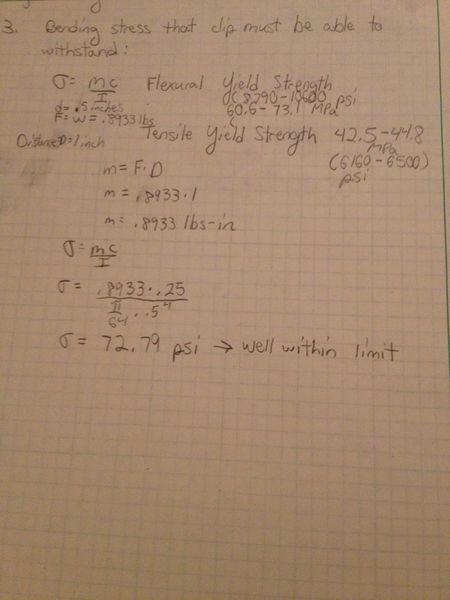 3. Bending stress that clip must be able to
withstand:
σ = mc/I Flexural Yield Strength
(8790-10600 psi
60.6-73.1 MPa
d = .5 inches
F = W = .8933 lbs
Distance D = 1 inch
Tensile Yield Strength 42.5-44.8
MPa
(6160-6500)
psi
m = F·D
m = .8933·1
m = .8933 lbs-in
σ = mc/I
σ = .8933·.25
π/64 ·.5⁴
σ = 72.79 psi → well within limit